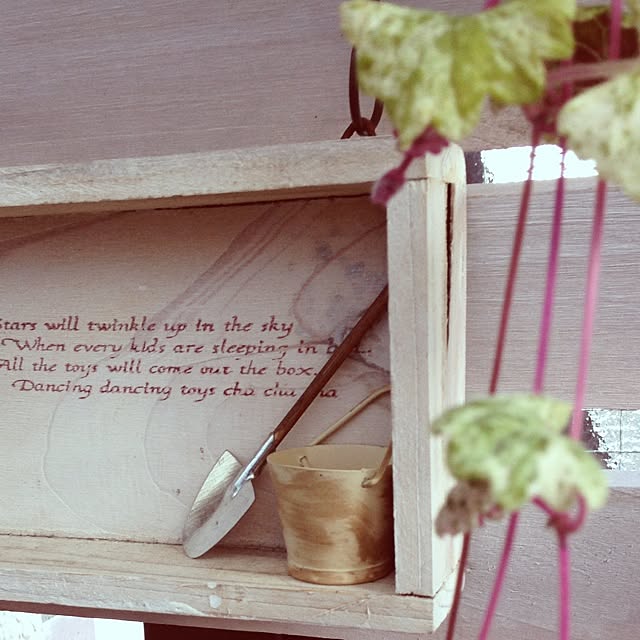 Stars will twinkle up in the sky
When every kids are sleeping in
All the toys will come out the box.
Dancing dancing toys cha cha